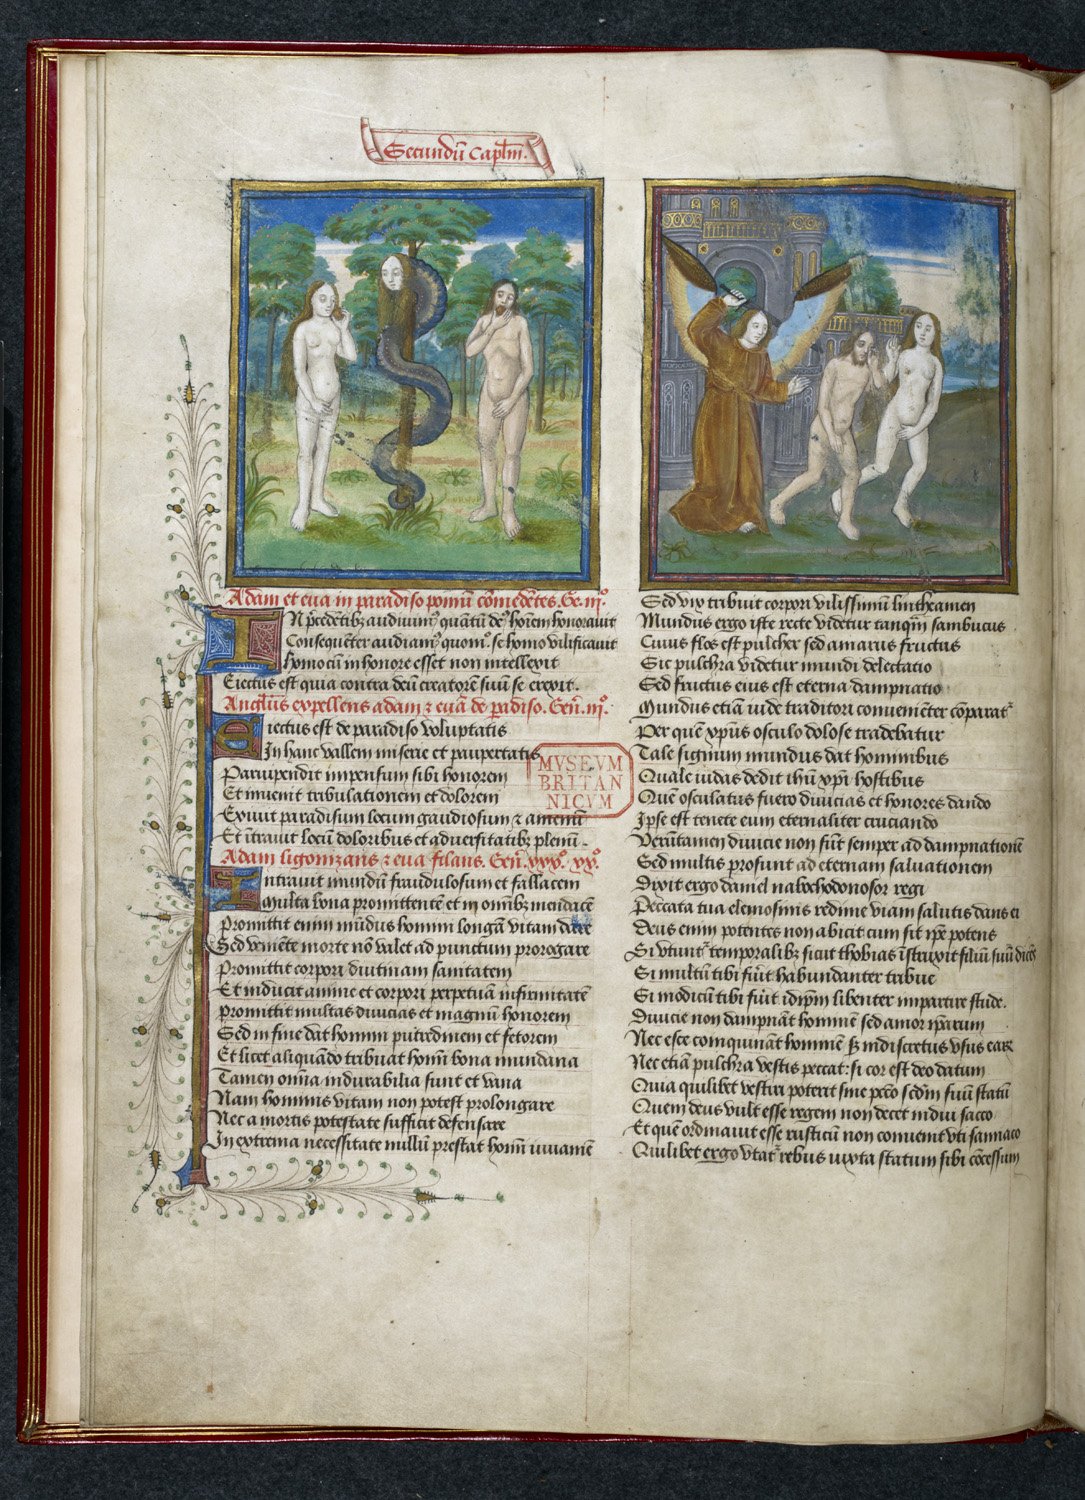 Secundū Capl̄m.
Adam et eua in paradiso pomū comedētes. Ge. iijº.
IN p̄cedētibꝫ audiuimꝰ quātū deꝰ hoīem honorauit
Consequēter audiamꝰ quomº. se homo vilificauit
Homo cū in honore esset non intellexit
Eiectus est quia contra deū creatorē suū se erexit.
Angelus expellens adam ⁊ euā de padiso. Gen̄. iijº.
Eiectus est de paradiso voluptatis
In hanc vallem miserie et paupertatis
Paruipendit impensum sibi honorem
Et inuenit tribulationem et dolorem
Exiuit paradisum locum gaudiosum ⁊ amenū
Et ītrauit locū doloribus et aduersitatibꝫ plenū.
Adam ligonizans ⁊ eua filans. Gen̄.
Intrauit mundū fraudulosum et fallacem
Multa bona promittentē et in om̄ibꝫ mendacē
Promittit enim mūdus homini longā vitam dare
Sed veniēte morte nō valet ad punctum prorogare
Promittit corpori diutinam sanitatem
Et inducit anime et corpori perpetuā īfirmitatē
Promittit multas diuicias et magnū honorem
Sed in fine dat homini putredinem et fetorem
Et licet aliquādo tribuat homī bona mundana
Tamen om̄ia indurabilia sunt et vana
Nam hominis vitam non potest prolongare
Nec a mortis potestate sufficit defensare
In extrema necessitate nullū prestat homī iuuamē
Sed vix tribuit corpori vilissimū lintheamen
Mundus ergo iste recte videtur tanqȝm sambucus
Cuius flos est pulcher sed amarus fructus
Sic pulchra videtur mundi delectatio
Sed fructus eius est eterna dampnatio
Mundus etiā iude traditori conuenienter cōparat᷑
Per quē xpūs osculo dolose tradebatur
Tale signum mundus dat hominibus
Quale iudas dedit ihū xpī hostibus
Quē osculatus fuero diuicias et honores dando
Ipse est tenete eum eternaliter cruciando
Verūtamen diuicie non sūt semper ad dampnationē
Sed multis prosunt ad eternam saluationem
Dixit ergo daniel nabochodonosor regi
Peccata tua elemosinis redime viam salutis dans ei
Deus enim potentes non abicit cum sit ip̄e potens
Si vtunt᷑ temporalibꝫ sicut thobias īstruxit filiū suū dicēs
Si multū tibi fūit habundanter tribue
Si modicū tibi fūit id ip̄m libenter impartire stude.
Diuicie non dampnāt hominē sed amor ip̄arum
Nec esce coinquināt hominē sꝫ indiscretus vsus earꝝ
Nec etiā pulchra vestis peccat: si cor est deo datum
Quia quilibet vestiri poterit sine pctō secdm̄ suū statū
Quem deus vult esse regem non decet indui sacco
Et quē ordinauit esse rusticū non conuenit vti
Quilibet ergo vtat᷑ rebus iuxta statum sibi cōcessum
MVSEVM
BRITAN
NICVM